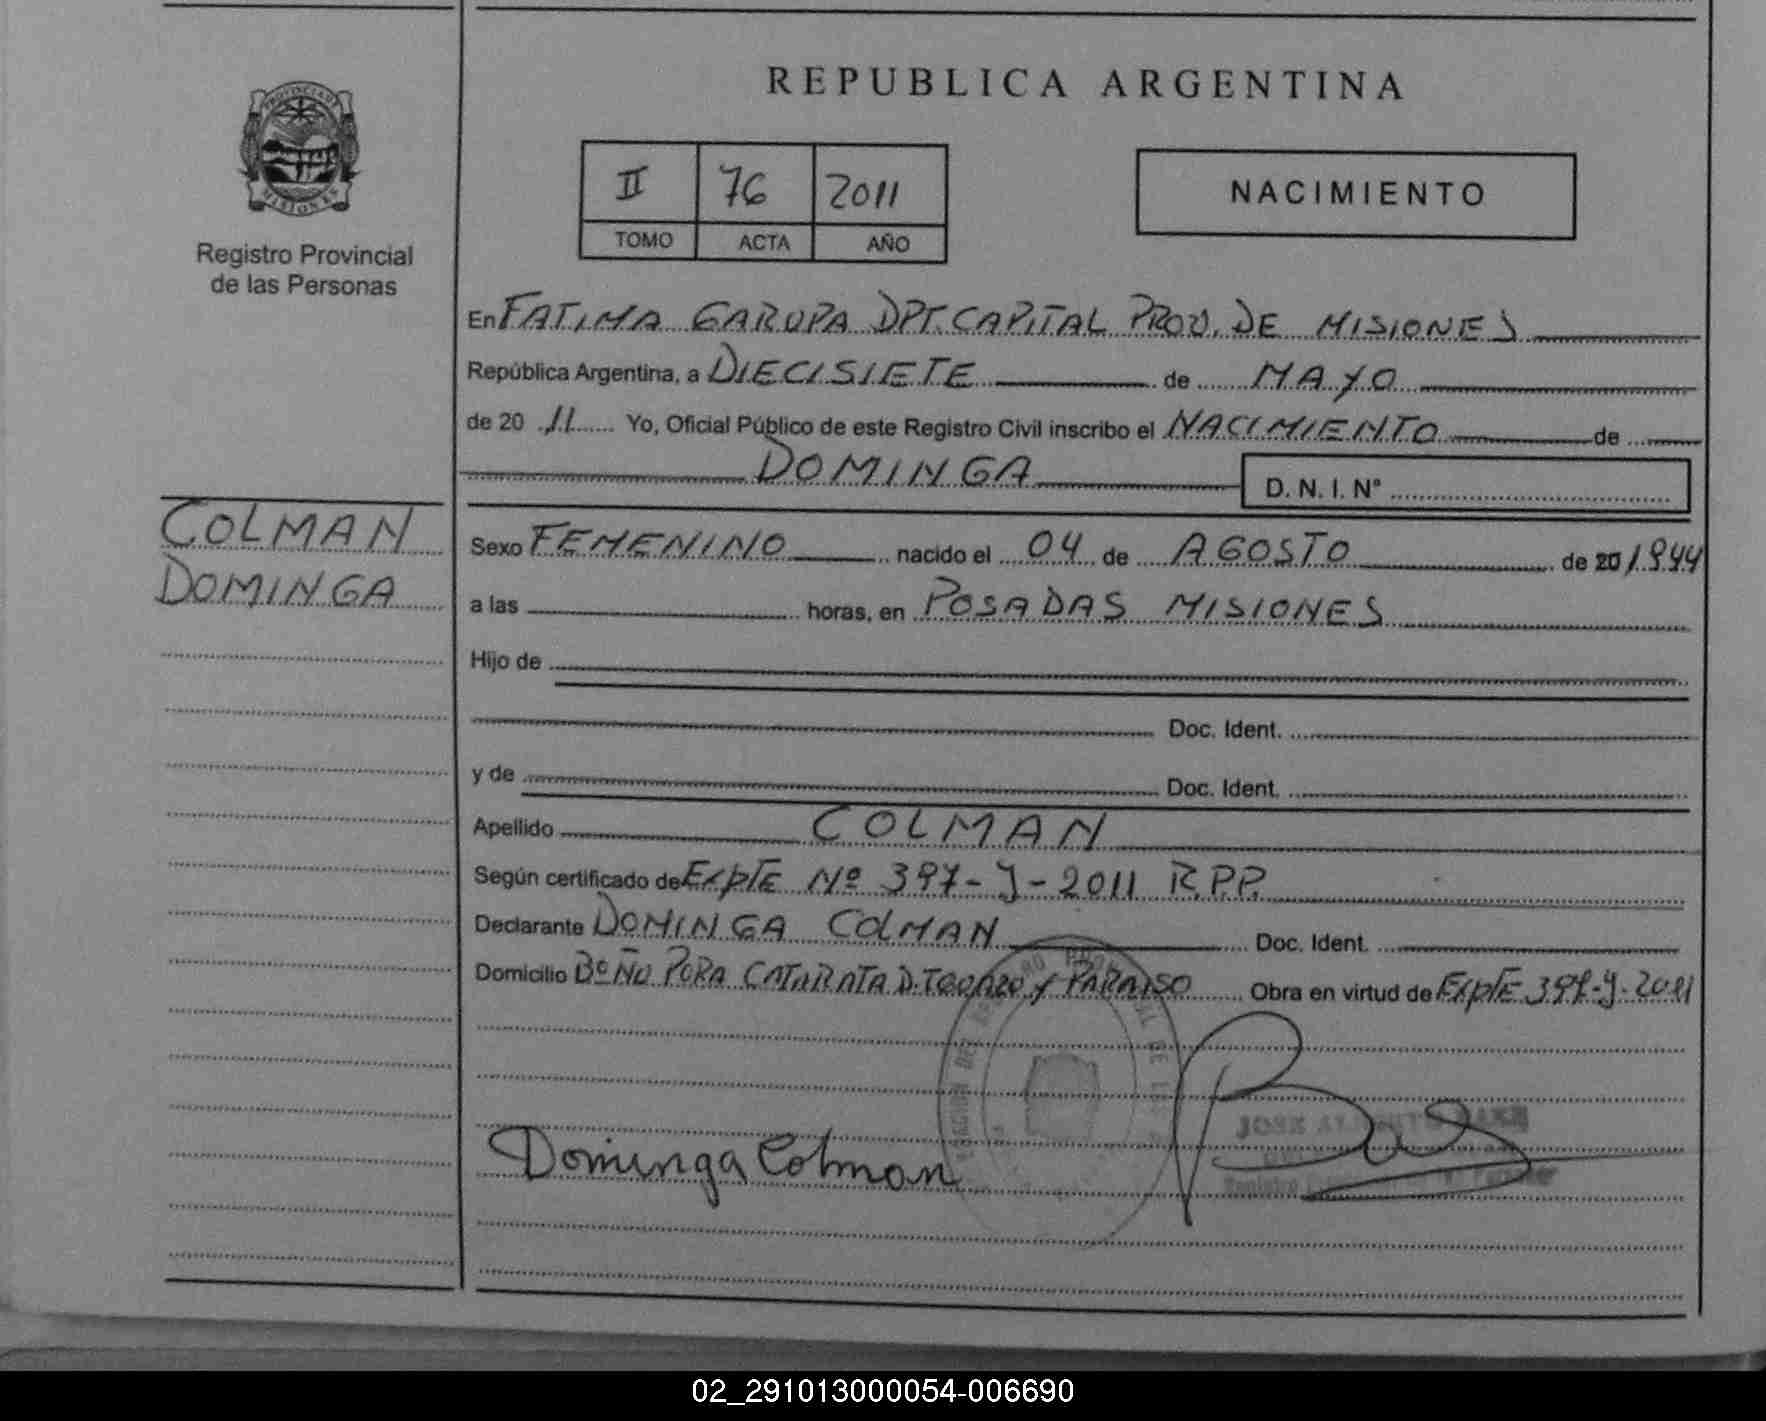 REPUBLICA ARGENTINA
PROVINCIA DE
MISIONES
Registro Provincial
de las Personas
II 76 2011
TOMO ACTA AÑO
NACIMIENTO
En FATIMA GARUPA DPT. CAPITAL PROV. DE MISIONES
República Argentina, a DIECISIETE de MAYO
de 20 11 Yo, Oficial Público de este Registro Civil inscribo el NACIMIENTO de
DOMINGA D. N. I. N°
COLMAN
DOMINGA
Sexo FEMENINO nacido el 04 de AGOSTO de 20 1944
a las horas, en POSADAS MISIONES
Hijo de
Doc. Ident.
y de Doc. Ident.
Apellido COLMAN
Según certificado de ExpTE Nº 397-J-2011 R.P.P.
Declarante DOMINGA COLMAN Doc. Ident.
Domicilio Bº ÑU PORA CATARATA Y PARAISO Obra en virtud de ExpTE 397-J-2011
Dominga Colman
JOSE
Registro
02_291013000054-006690